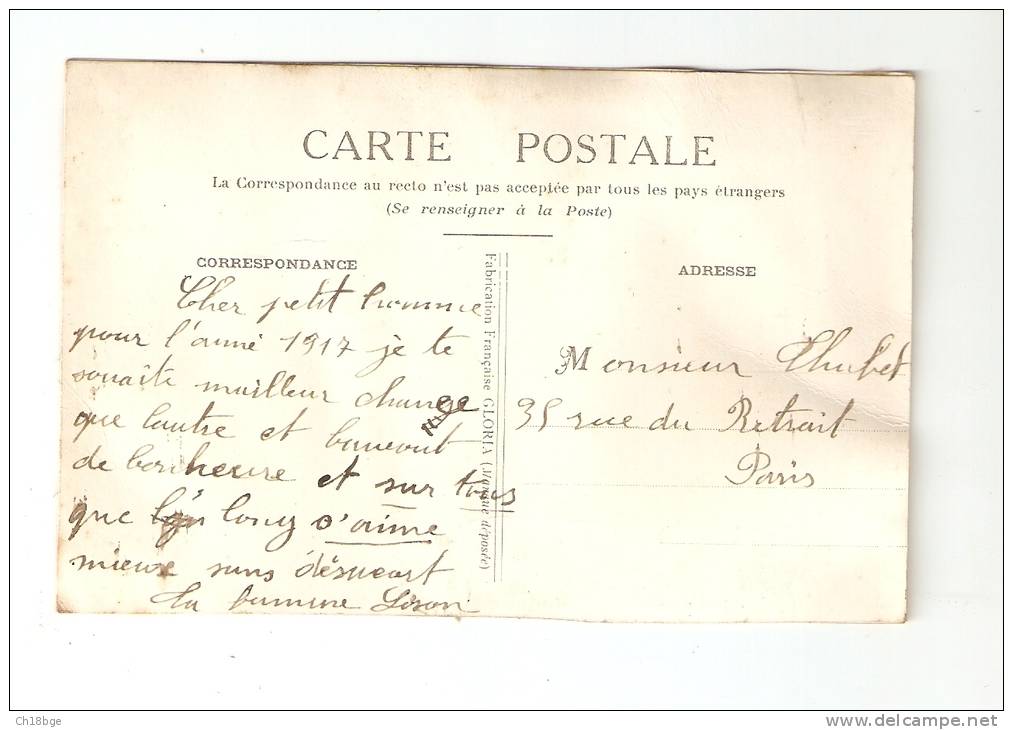 CARTE POSTALE
La Correspondance au recto n'est pas acceptée par tous les pays étrangers
(Se renseigner à la Poste)
CORRESPONDANCE
Cher petit homme
pour l'anné 1917 je te
souaite mailleur change
que lautre et baucout
de bonheure et sur tous
que lon song s'aime
mieux sans
ta famme Lison
Fabrication Française GLORIA (Marque déposée)
ADRESSE
Monsieur Chubet
35 rue du Retrait
Paris
Ch18bge
www.delcampe.net